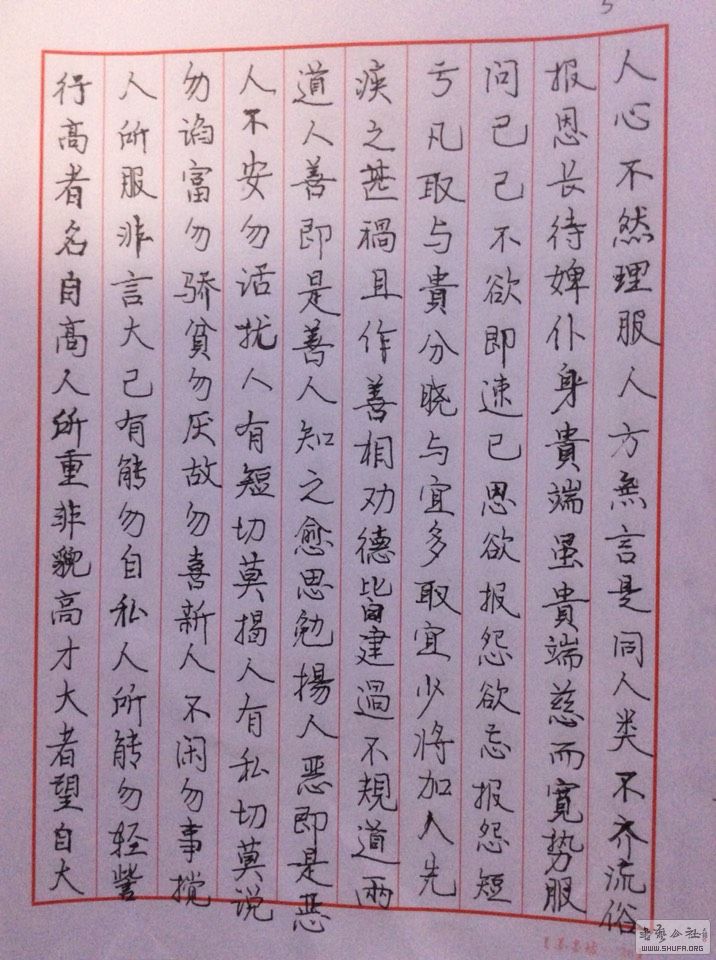 5
人心不然理服人方無言是同人类不齐流俗
报恩长待婢仆身貴端虽貴端慈而寬势服
问己己不欲即速已恩欲报怨欲忘报怨短
亏凡取与貴分晓与宜多取宜少将加人先
疾之甚禍且作善相劝德皆建過不規道兩
道人善即是善人知之愈思勉揚人恶即是恶
人不安勿话扰人有短切莫揭人有私切莫说
勿谄富勿骄貧勿厌故勿喜新人不闲勿事搅
人所服非言大己有能勿自私人所能勿轻訾
行高者名自高人所重非貌高才大者望自大
書藝公社
WWW.SHUFA.ORG